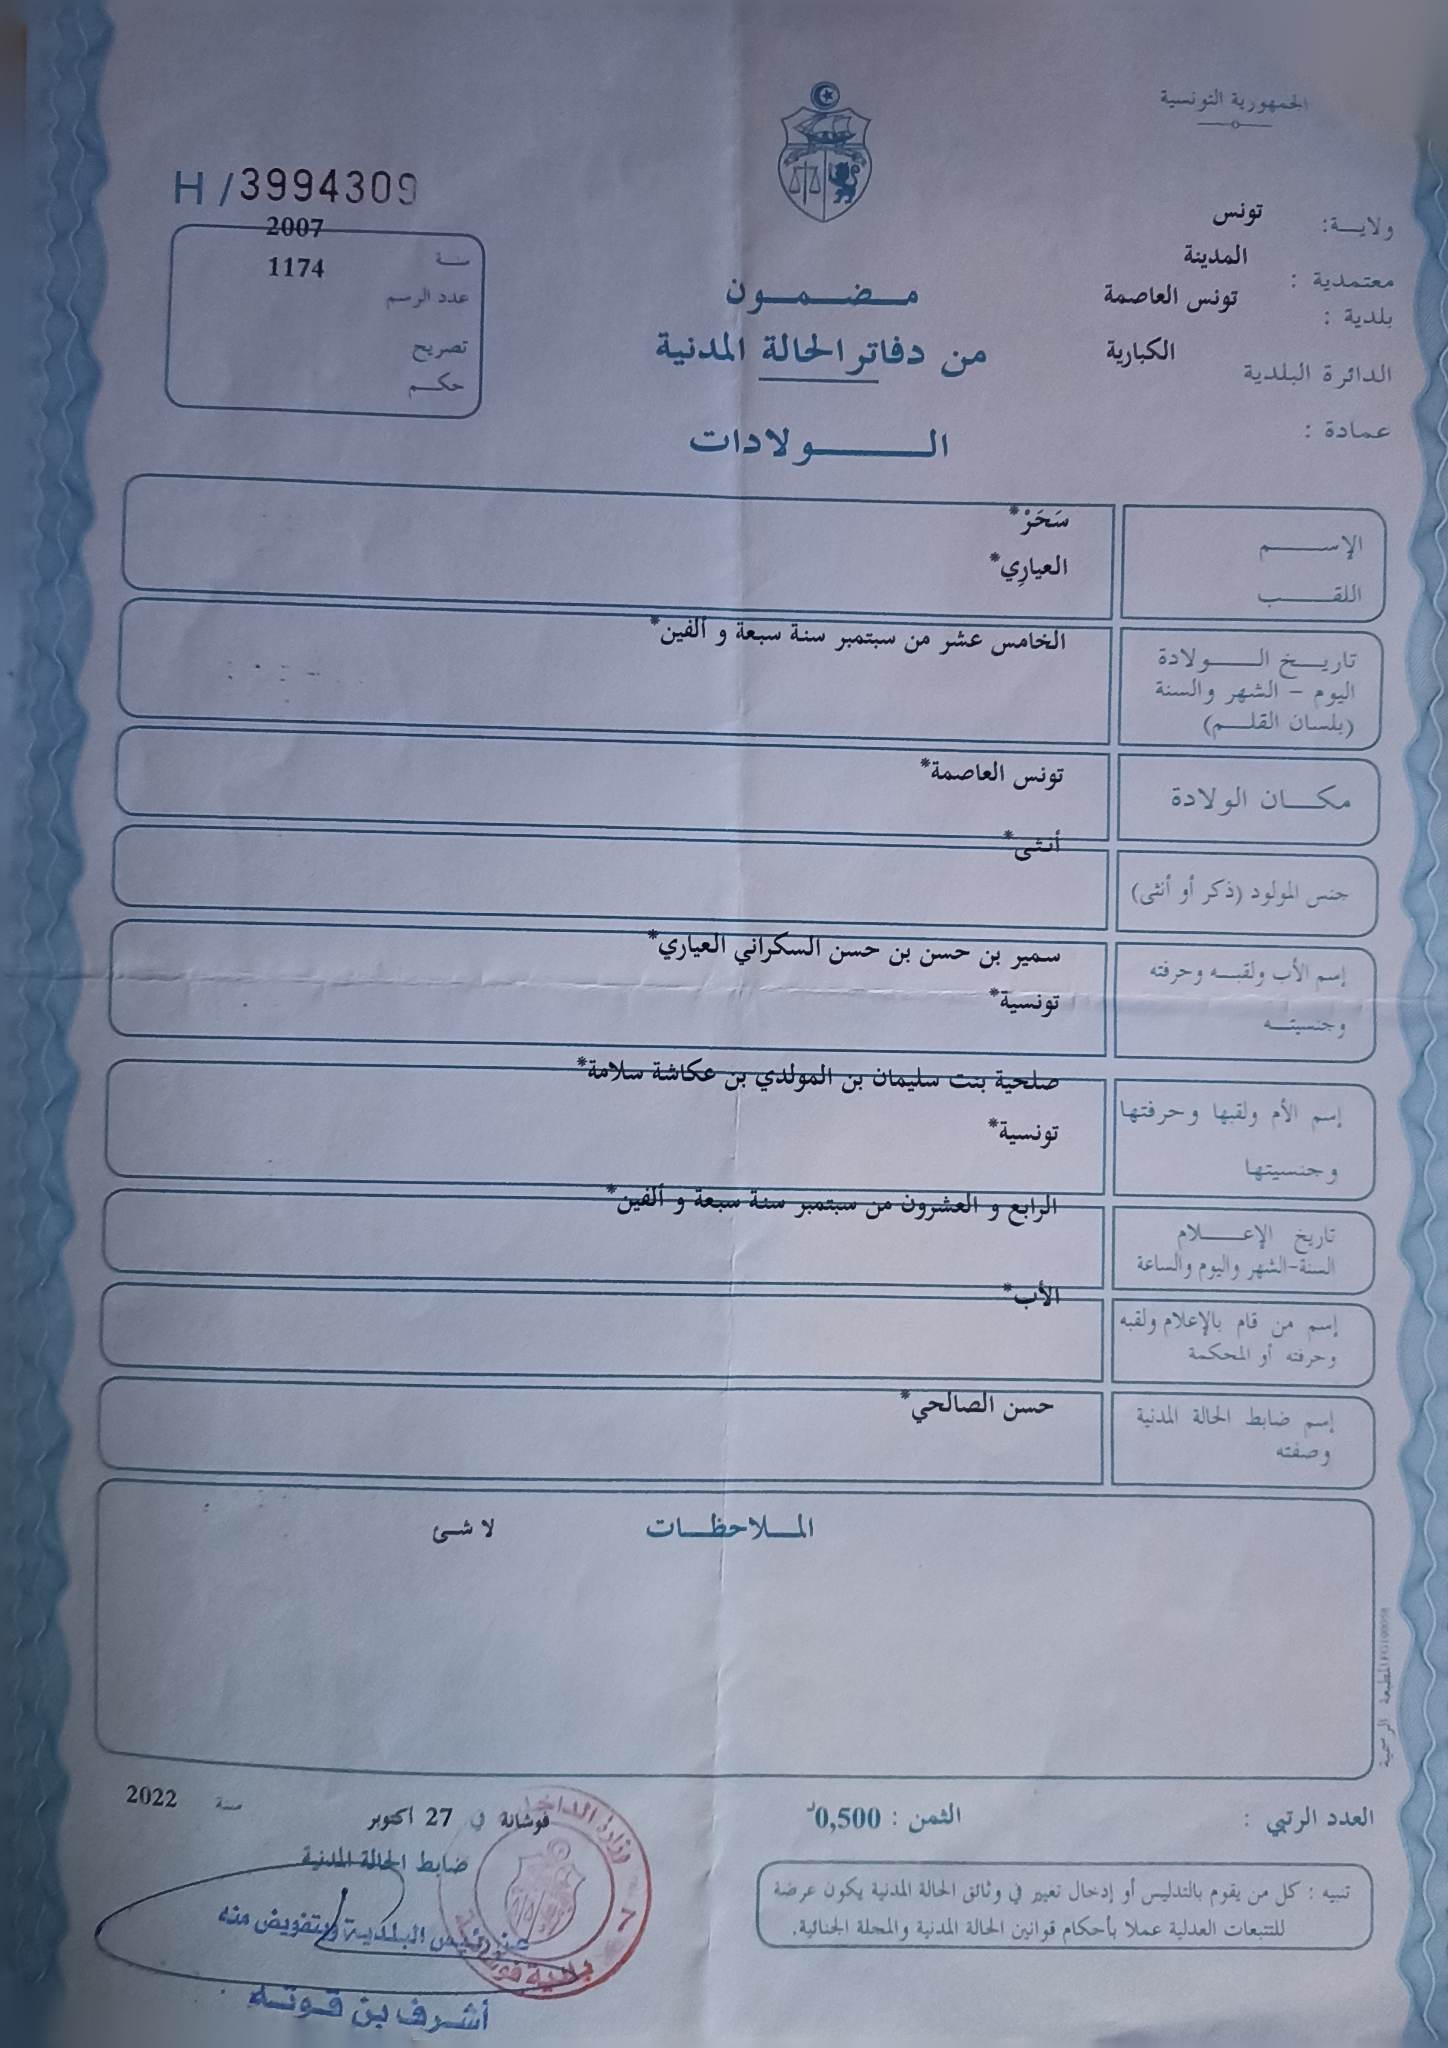 الجمهورية التونسية
H / 3994309
ولاية: تونس
معتمدية : المدينة
بلدية : تونس العاصمة
الدائرة البلدية الكبارية
عمادة :
سنة 2007
عدد الرسم 1174
تصريح
حكم
مضمون
من دفاتر الحالة المدنية
الولادات
الإسم سَحَرْ*
اللقب العيارِي*
تاريخ الولادة الخامس عشر من سبتمبر سنة سبعة و ألفين*
اليوم - الشهر والسنة
(بلسان القلم)
مكان الولادة تونس العاصمة*
جنس المولود (ذكر أو أنثى) أنثى*
إسم الأب ولقبه وحرفته سمير بن حسن بن حسن السكراني العياري*
وجنسيته تونسية*
إسم الأم ولقبها وحرفتها صلحية بنت سليمان بن المولدي بن عكاشة سلامة*
وجنسيتها تونسية*
تاريخ الإعلام الرابع و العشرون من سبتمبر سنة سبعة و ألفين*
السنة-الشهر واليوم والساعة
إسم من قام بالإعلام ولقبه الأب*
وحرفته أو المحكمة
إسم ضابط الحالة المدنية حسن الصالحي*
وصفته
الملاحظات لا شئ
المطبعة الرسمية
العدد الرتبي :
الثمن : 0,500د
فوشانة في 27 اكتوبر سنة 2022
ضابط الحالة المدنية
تنبيه : كل من يقوم بالتدليس أو إدخال تغيير في وثائق الحالة المدنية يكون عرضة
للتتبعات العدلية عملا بأحكام قوانين الحالة المدنية والمجلة الجنائية.
عن رئيس البلدية وبتفويض منه
أشرف بن قوته
وزارة الداخلية
7
بلدية فوشانة